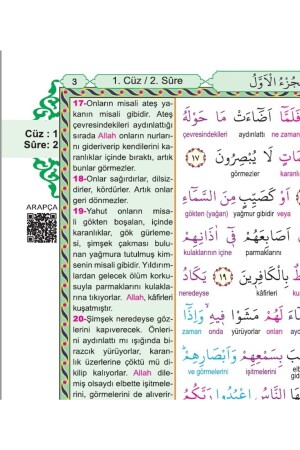 3
1. Cüz / 2. Sûre
جُزْءُ الْاَوَّلُ
Cüz : 1
Sûre: 2
ARAPÇA
17-Onların misali ateş ya-
kanın misali gibidir. Ateş
çevresindekileri aydınlattığı
sırada Allah onların nurları-
nı gideriverip kendilerini ka-
ranlıklar içinde bıraktı, artık
bunlar görmezler.
18-Onlar sağırdırlar, dilsiz-
dirler, kördürler. Artık onlar
geri dönmezler.
19-Yahut onların misa-
li gökten boşalan, içinde
karanlıklar, gök gürleme-
si, şimşek çakması bulu-
nan yağmura tutulmuş kim-
senin misali gibidir. Yıldırım-
lardan gelecek ölüm korku-
suyla parmaklarını kulakla-
rına tıkıyorlar. Allah, kâfirleri
kuşatmıştır.
20-Şimşek neredeyse göz-
lerini kapıverecek. Önleri-
ni aydınlattı mı ışığında bi-
razcık yürüyorlar, karan-
lık üzerlerine çöktü mü di-
kilip kalıyorlar. Allah dile-
miş olsaydı elbette işitmele-
rini, görmelerini de alıverir-
فَلَمَّٓا اَضَٓاءَتْ مَا حَوْلَهُ
çevresindekileri aydınlattı ne zaman
لَا يُبْصِرُونَ ﴿١٧﴾
görmezler karanlıklar
اَوْ كَصَيِّبٍ مِنَ السَّمَٓاءِ
gökten (yağan) yağmur gibidir veya
اَصَابِعَهُمْ فٖٓي اٰذَانِهِمْ
kulaklarının içine parmaklarını
بِالْكَافِرٖينَ ﴿١٩﴾ يَكَادُ
neredeyse kâfirleri
لَهُمْ مَشَوْا فٖيهِ وَاِذَٓا
zaman onda yürüyorlar onları
بِسَمْعِهِمْ وَاَبْصَارِهِمْ
ve görmelerini işitmelerini
النَّاسُ اعْبُدُوا رَبَّكُمُ